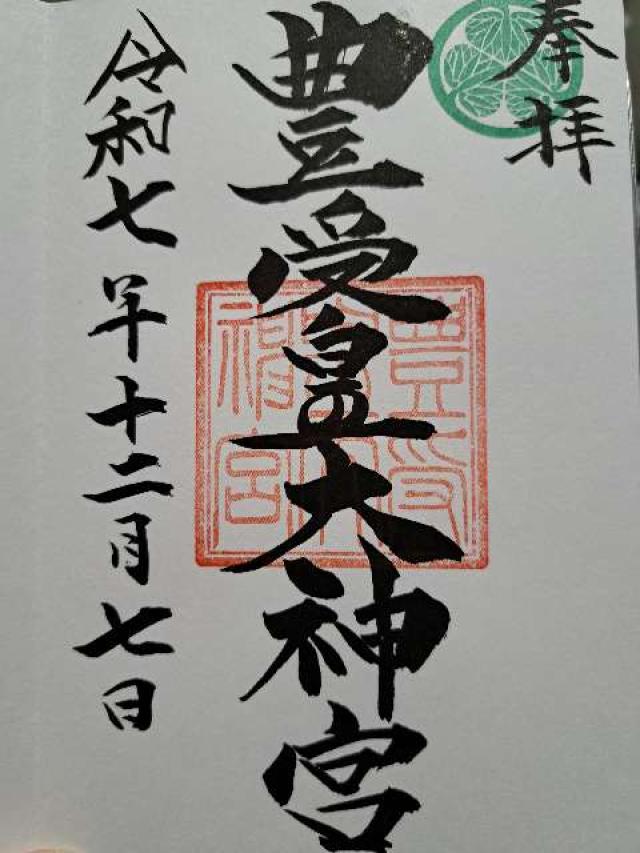 奉拝
豊受皇大神宮
豊受皇大神宮
令和七年十二月七日